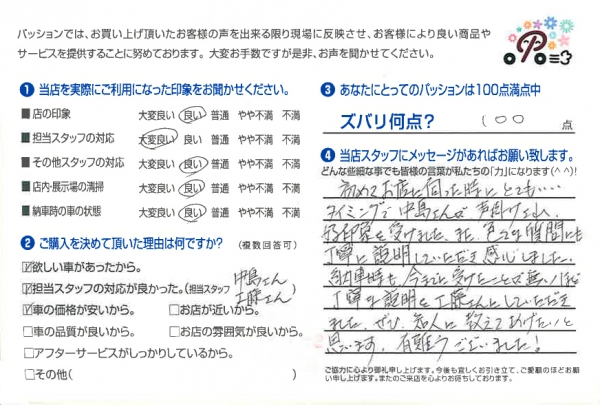 パッションでは、お買い上げ頂いたお客様の声を出来る限り現場に反映させ、お客様により良い商品や
サービスを提供することに努めております。大変お手数ですが是非、お声を聞かせてください。
❶ 当店を実際にご利用になった印象をお聞かせください。
■ 店の印象 大変良い 良い 普通 やや不満 不満
■ 担当スタッフの対応 大変良い 良い 普通 やや不満 不満
■ その他スタッフの対応 大変良い 良い 普通 やや不満 不満
■ 店内・展示場の清掃 大変良い 良い 普通 やや不満 不満
■ 納車時の車の状態 大変良い 良い 普通 やや不満 不満
❷ ご購入を決めて頂いた理由は何ですか? (複数回答可)
☑欲しい車があったから。
☑担当スタッフの対応が良かった。(担当スタッフ 中島さん 工藤さん )
☑車の価格が安いから。 □お店が近いから。
□車の品質が良いから。 □お店の雰囲気が良いから。
□アフターサービスがしっかりしているから。
□その他( )
❸ あなたにとってのパッションは100点満点中
ズバリ何点? 100 点
❹ 当店スタッフにメッセージがあればお願い致します。
どんな些細な事でも皆様の言葉が私たちの「力」になります(^^)!
初めてお店に伺った時に とても‥‥
タイミングで中島さんが声掛け
好印象を受けました。また、色々な質問にも
丁寧に説明していただき感心しました。
納車時も今までに受けたことが無いほど
丁寧な説明を工藤さんにしていただき
ました。ぜひ、知人に教えてあげたいと
思います。有難うございました!
ご協力に心より御礼申し上げます。今後も宜しくお引き立て、ご愛顧のほどお願
い申し上げます。またのご来店を心よりお待ちしております。